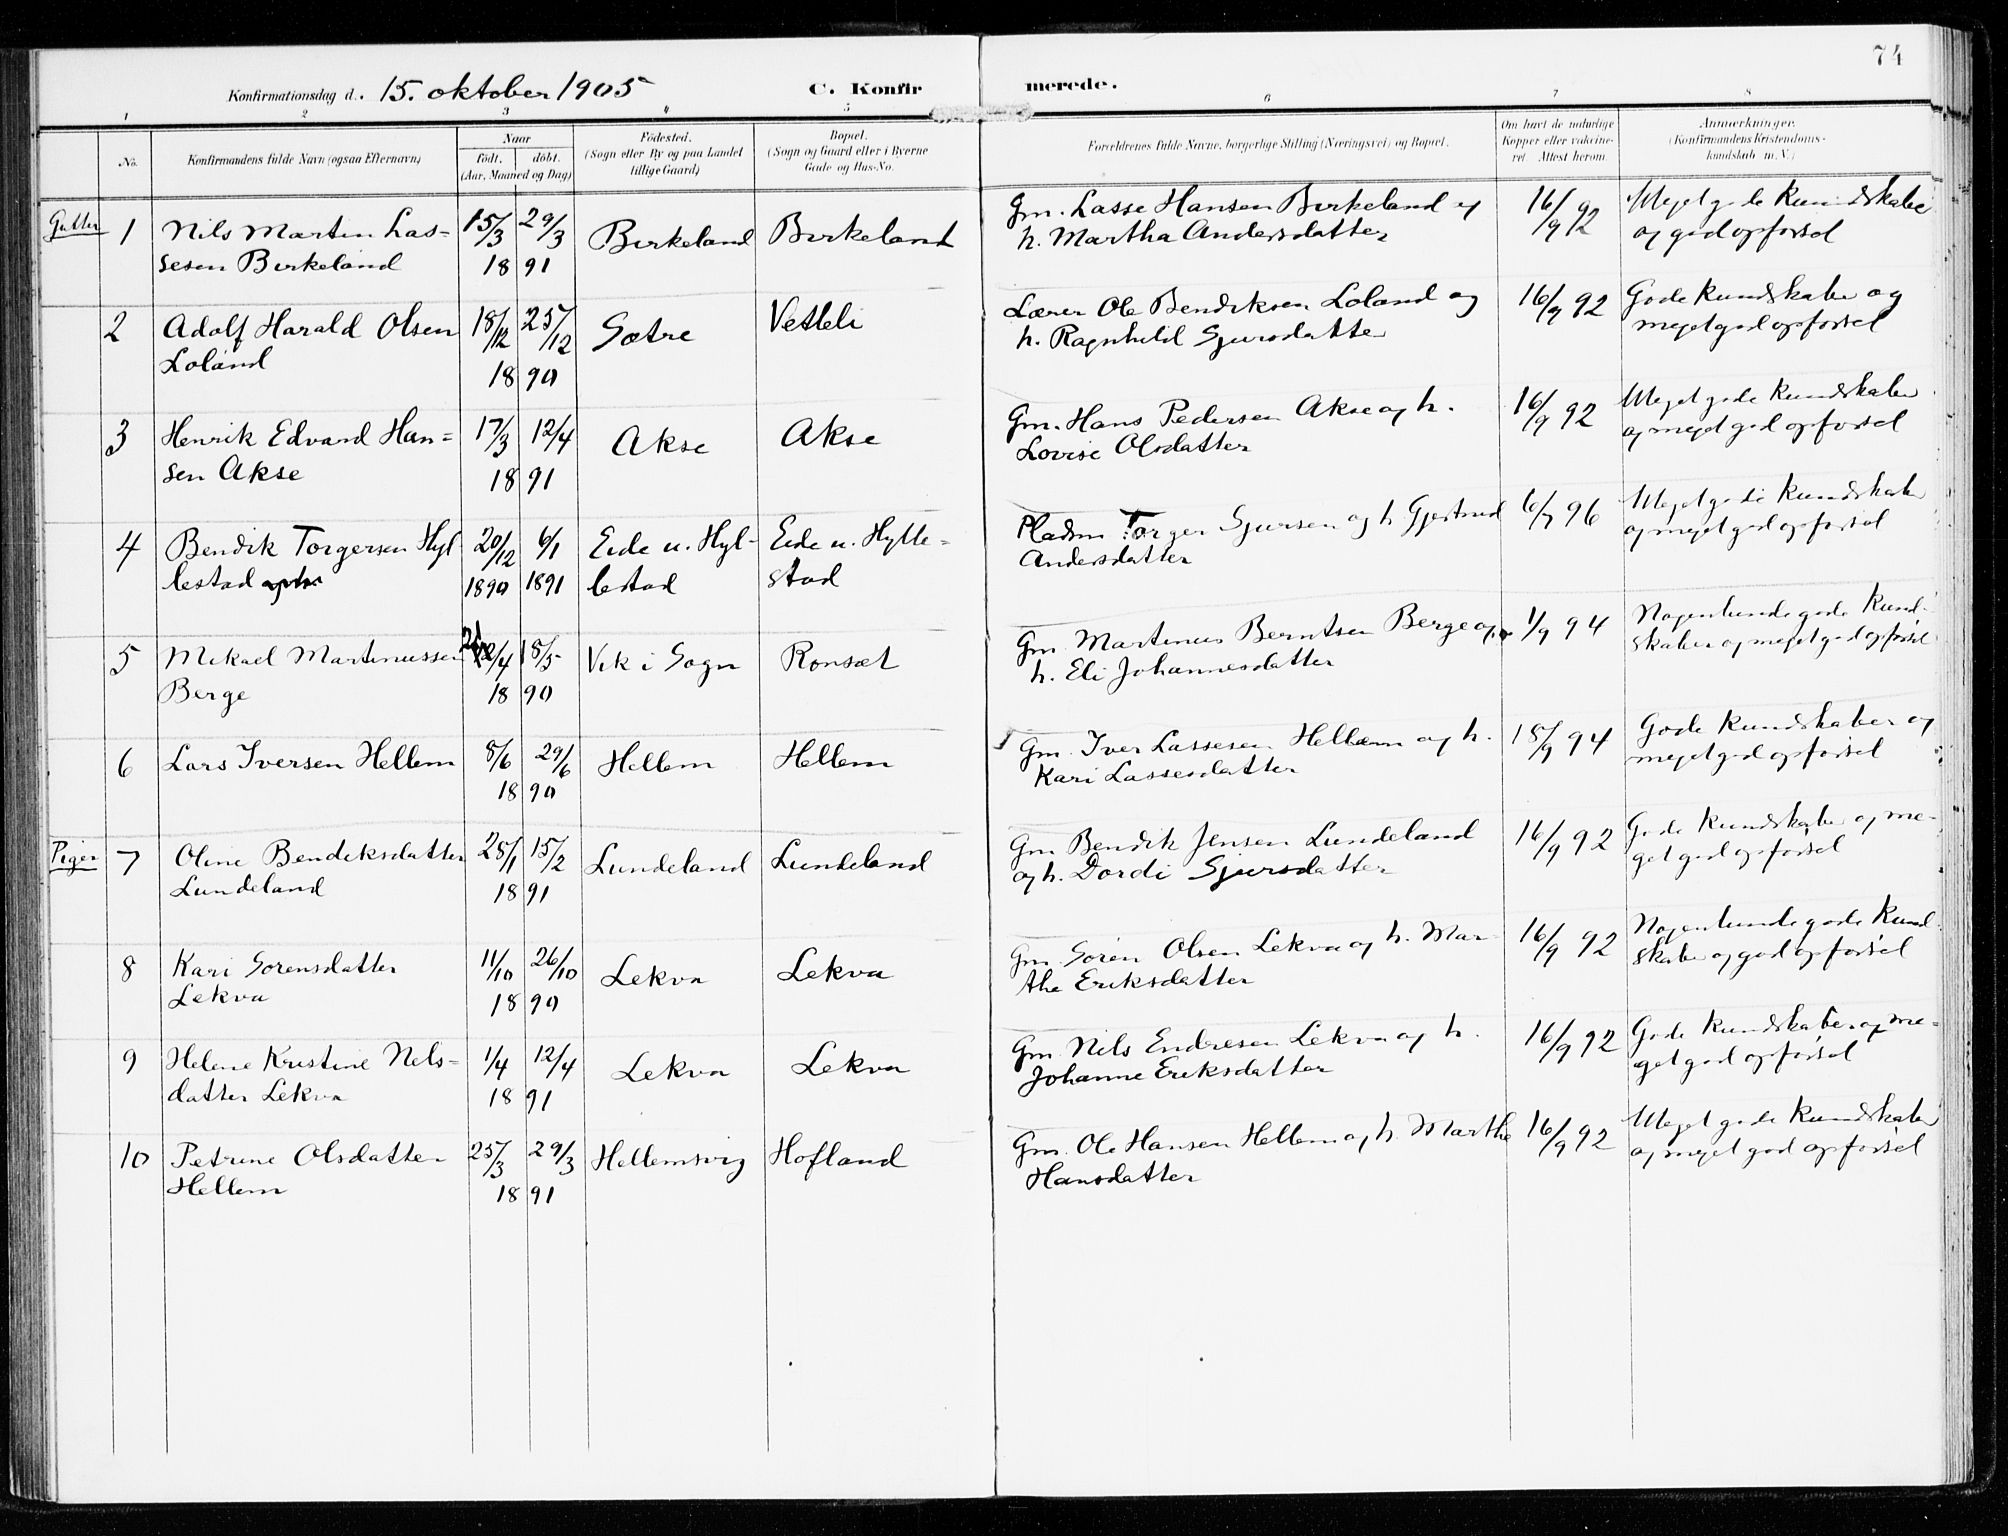 74
Konfirmationsdag d. 15. oktober 1905
C. Konfirmerede.
1 2 3 4 5 6 7 8
No.
Konfirmandens fulde Navn (ogsaa Efternavn)
Naar
født. døbt.
(Aar, Maaned og Dag)
Fødested.
(Sogn eller By og paa Landet
tillige Gaard)
Bopæl.
(Sogn og Gaard eller i Byerne
Gade og Hus-No.
Forældrenes fulde Navne, borgerlige Stilling (Næringsvei) og Bopæl.
Om havt de naturlige
Kopper eller vaccine-
ret. Attest herom.
Anmærkninger.
(Konfirmandens Kristendoms-
kundskab m. V.)
Gutter 1 Nils Martin Las= 15/3 29/3 Birkeland Birkeland Gm. Lasse Hansen Birkeland og 16/9 92 Meget gode kundskaber
sesen Birkeland 18 91 h. Martha Andersdatter og god opførsel
2 Adolf Harald Olsen 18/12 25/12 Sætre Vetleli Lærer Ole Bendiksen Loland og 16/9 92 Gode kundskaber og
Loland 18 90 h. Ragnhild Sjursdatter meget god opførsel
3 Henrik Edvard Han= 17/3 12/4 Akse Akse Gm. Hans Pedersen Akse og h. 16/9 92 Meget gode kundskaber
sen Akse 18 91 Lovise Olsdatter og meget god opførsel
4 Bendik Torgersen Hyl 20/12 6/1 Eide u. Hyl- Eide u. Hylle= Pladsm. Torger Sjursen og h. Gjertrud 6/7 96 Meget gode kundskaber
lestad 1890 1891 lestad stad Andersdatter og meget god opførsel
5 Mikael Martinussen /4 18/5 Vik i Sogn Ronsæt Gm. Martinus Berntsen Berge og 1/9 94 Nogenlunde gode kund-
Berge 18 90 h. Eli Johannesdatter skaber og meget god opførsel
6 Lars Iversen Hellem 8/6 29/6 Hellem Hellem Gm. Iver Lassesen Hellem og h. 18/9 94 Gode kundskaber og
18 90 Kari Lassesdatter meget god opførsel
Piger 7 Oline Bendiksdatter 28/1 15/2 Lundeland Lundeland Gm Bendik Jensen Lundeland 16/9 92 Gode kundskaber og me-
Lundeland 18 91 og h. Dordi Sjursdatter get god opførsel
8 Kari Sørensdatter 11/10 26/10 Lekva Lekva Gm. Søren Olsen Lekva og h. Mar- 16/9 92 Nogenlunde gode kund-
Lekva 18 90 the Eriksdatter skaber og god opførsel
9 Helene Kristine Nels- 1/4 12/4 Lekva Lekva Gm. Nils Endresen Lekva og h. 16/9 92 Gode kundskaber og me-
datter Lekva 18 91 Johanne Eriksdatter get god opførsel
10 Petrine Olsdatter 25/3 29/3 Hellemsvig Hofland Gm. Ole Hansen Hellem og h. Marthe 16/9 92 Meget gode kundskaber
Hellem 18 91 Hansdatter og meget god opførsel